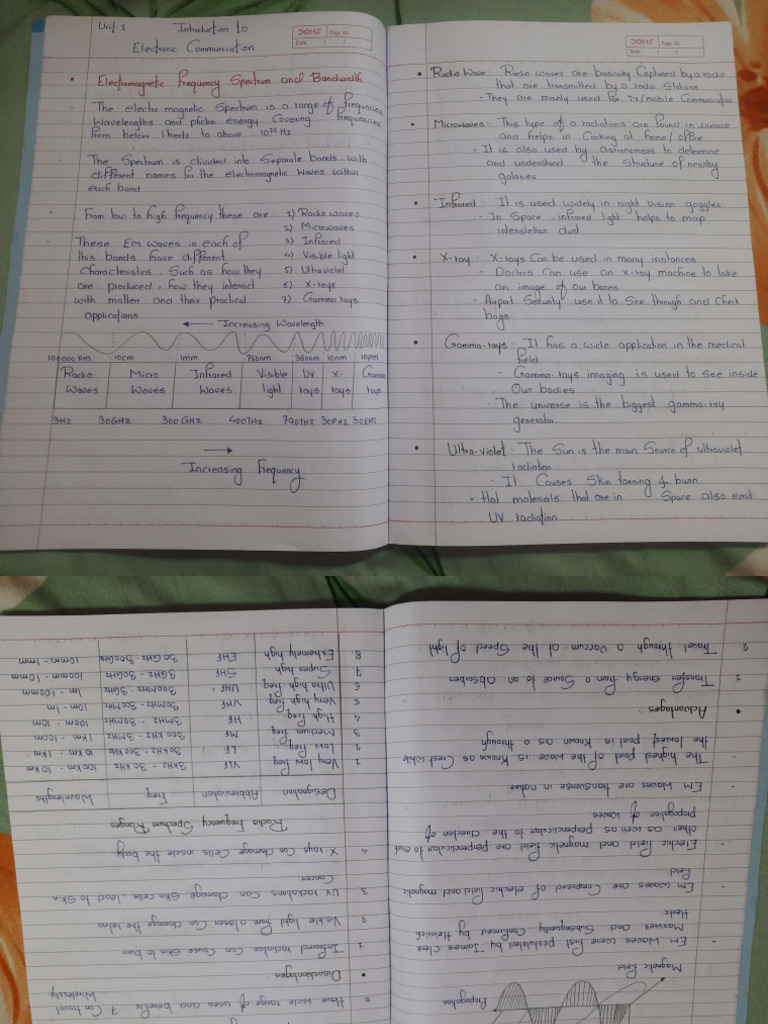 Unit. 1 Introduction to
Electronic Communication.
JOHS Page No.
Date / /
• Electromagnetic frequency Spectrum and Bandwidth
- The electro magnetic Spectrum is a range of frequencies
Wavelengths and photon energy Covering frequencies
from below 1 hertz to above 10²⁵ Hz
- The Spectrum is divided into Separate bands with
different names for the electromagnetic Waves within
each band
- From low to high frequency these are 1) Radio waves
2) Microwaves
- These EM waves in each of 3) Infrared
this bands have different 4) Visible light
Characteristics. Such as how they 5) Ultraviolet
are produced, how they interact 6) X-rays
with matter and their practical 7) Gamma rays
applications
← Increasing Wavelength
100000 km 10cm 1mm 750nm 380nm 10nm 10pm
Radio Waves Micro Waves Infrared Waves Visible light UV rays X- rays Gamma rays
3Hz 30GHz 300GHz 400THz 790THz 30PHz 30EHz
→
Increasing frequency
JOHS Page No.
Date / /
• Radio Wave:- Radio waves are basically Captured by a radio
that are transmitted by a radio Stations
- They are mainly used for TV/mobile Communication
• Microwaves:- This type of a radiations are found in
and helps in Cooking at home/office
- It is also used by astronomers to determine
and understand the Structure of nearby
galaxies
• Infrared:- It is used widely in night vision goggles
- In Space, infrared light helps to map
interstellar dust
• X-ray:- X-rays Can be used in many instances
- Doctors Can use an x-ray machine to take
an image of our bones
- Airport Security use it to See through and Check
bags
• Gamma-rays:- It has a wide application in the medical
field
- Gamma-rays imaging is used to see inside
Our bodies
- The universe is the biggest gamma-ray
generator
• Ultra-violet:- The Sun is the main Source of ultraviolet
radiation
- It Causes Skin tanning & burn
- Hot materials that are in Space also emit
UV radiation
Propagation
Magnetic field
- EM Waves were first postulated by James Clerk
Maxwell and Subsequently Confirmed by Heinrich
Hertz
- EM waves are Composed of electric field and magnetic
field
- Electric field and magnetic field are perpendicular to each
other as well as to the perpendicular to the direction of
propagation of waves
EM Waves are transverse in nature
- The highest point of the wave is known as Crest while
the lowest point is known as a through
• Advantages:
1 Transfer energy from a Source to an absorber
2 Travel through a vaccum at the Speed of light
5 Have wide range of uses and benefits 7 Can travel
Wirelessly
• Disadvantages:
1 Infrared radiation Can Cause Skin to burn
2 Visible light from a laser Can damage the retina
3 UV radiations Can damage Skin cells, lead to Skin
Cancer
4 X rays Can damage Cells inside the body
Radio Frequency Spectrum Ranges
Designation Abbreviation Freq Wavelengths
1 Very low freq VLF 3kHz - 30kHz 100km - 10km
2 Low freq LF 30kHz - 300kHz 10km - 1km
3 Medium freq MF 300kHz - 3MHz 1km - 100m
4 High freq HF 3MHz - 30MHz 100m - 10m
5 Very high freq VHF 30MHz - 300MHz 10m - 1m
6 Ultra high freq UHF 300MHz - 3GHz 1m - 100mm
7 Super high SHF 3GHz - 30GHz 100mm - 10mm
8 Extremely high EHF 30GHz - 300GHz 10mm - 1mm